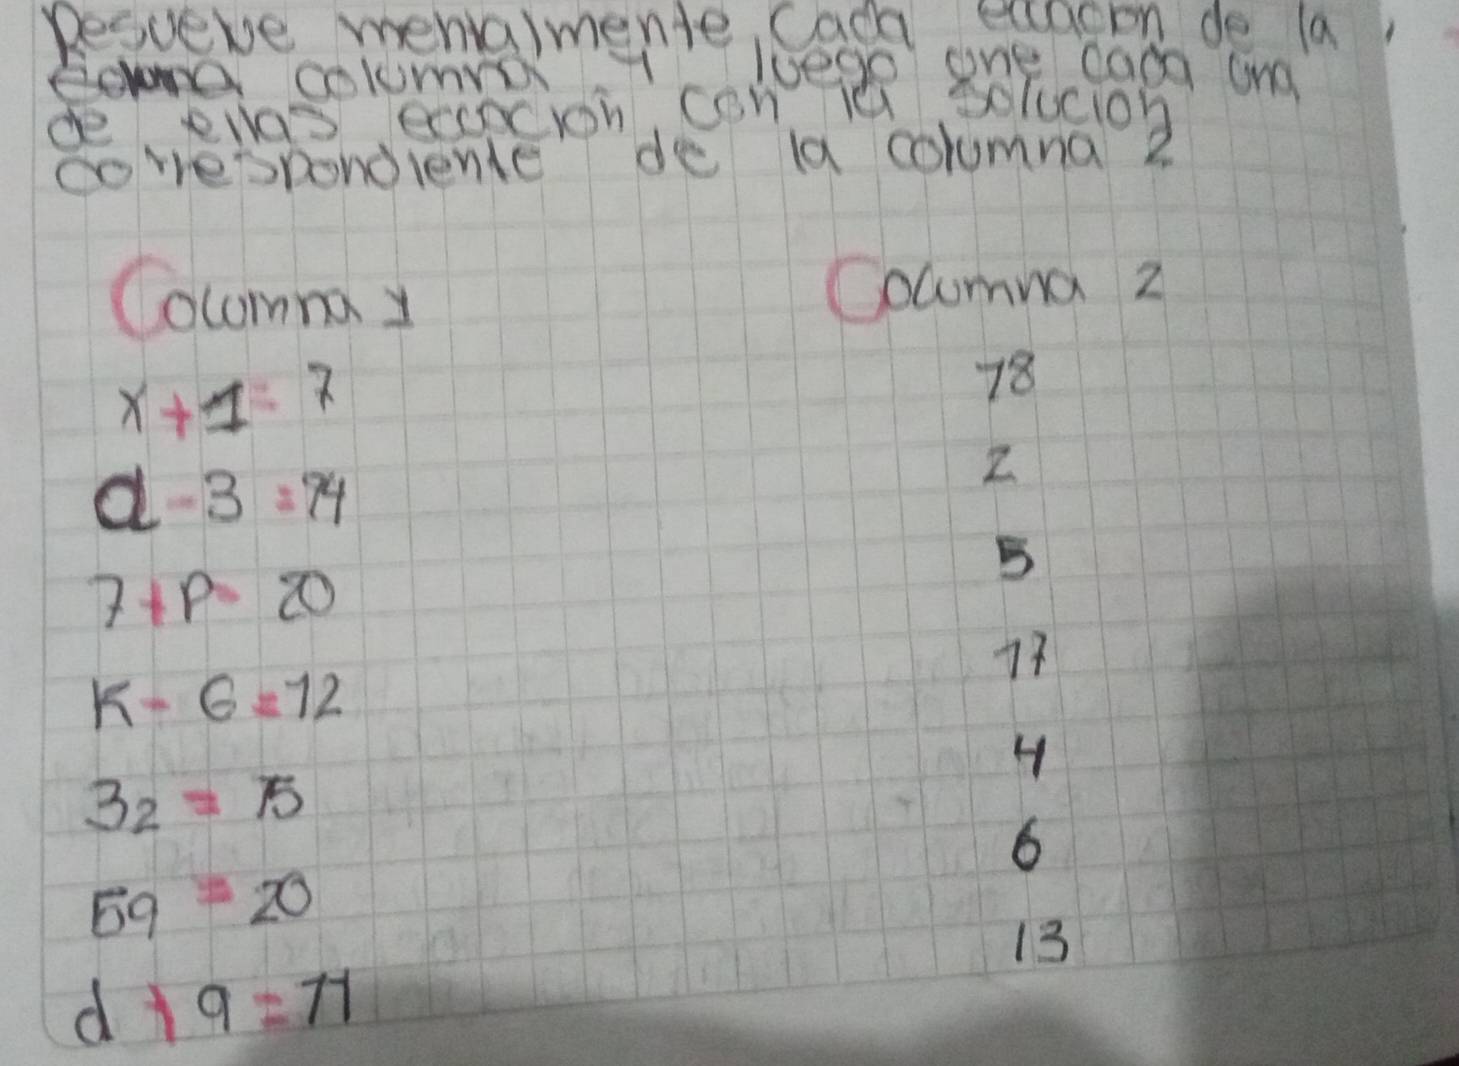 Resuelve mentalmente Cada ecuacion de la
columna y luego une cada una
de ellas ecuacion con la solucion
correspondiente de la columna 2
Columna 1
Columna 2
x+1=7
18
a-3=14
2
7+p=20
5
K-6=12
17
3z=15
4
5q=20
6
d+9=11
13